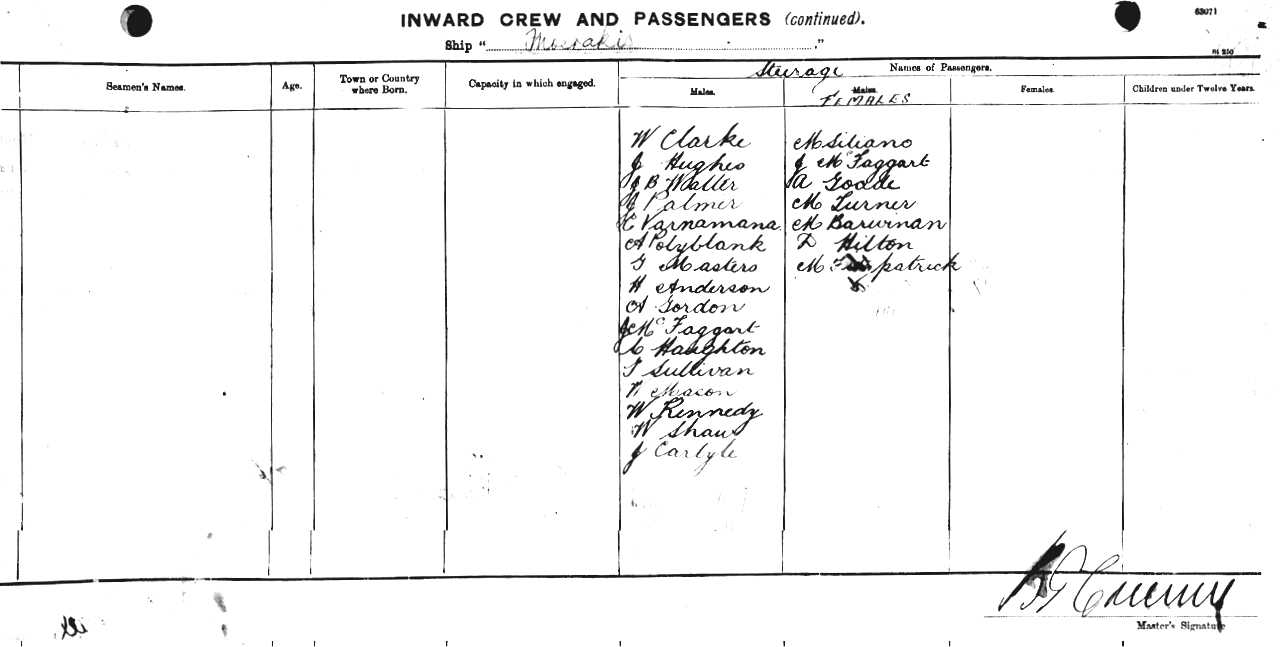 63071
INWARD CREW AND PASSENGERS (continued).
Ship " Moeraki "
Seamen's Names.
Age.
Town or Country
where Born.
Capacity in which engaged.
Steerage
Names of Passengers.
Males.
Males.
FEMALES
Females.
Children under Twelve Years.
W Clarke
J Hughes
J B Waller
J Palmer
C Varnamana
A Polyblank
G Masters
H Anderson
A Gordon
J McTaggart
C Haughton
T Sullivan
N Macon
W Kennedy
W Shaw
J Carlyle
M Siliano
J McTaggart
A Goode
M Turner
M Barwinan
D Hilton
M patrick
Master's Signature